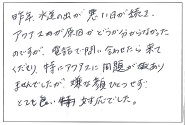 昨年 水道の出が悪い日が続き、
アクアスの方が原因かどうか分からなかった
のですが、電話で問い合わせたら来て
くださり、特にアクアスに問題が数あり
ませんでしたが、嫌な顔ひとつせず
とても良い対応でした。